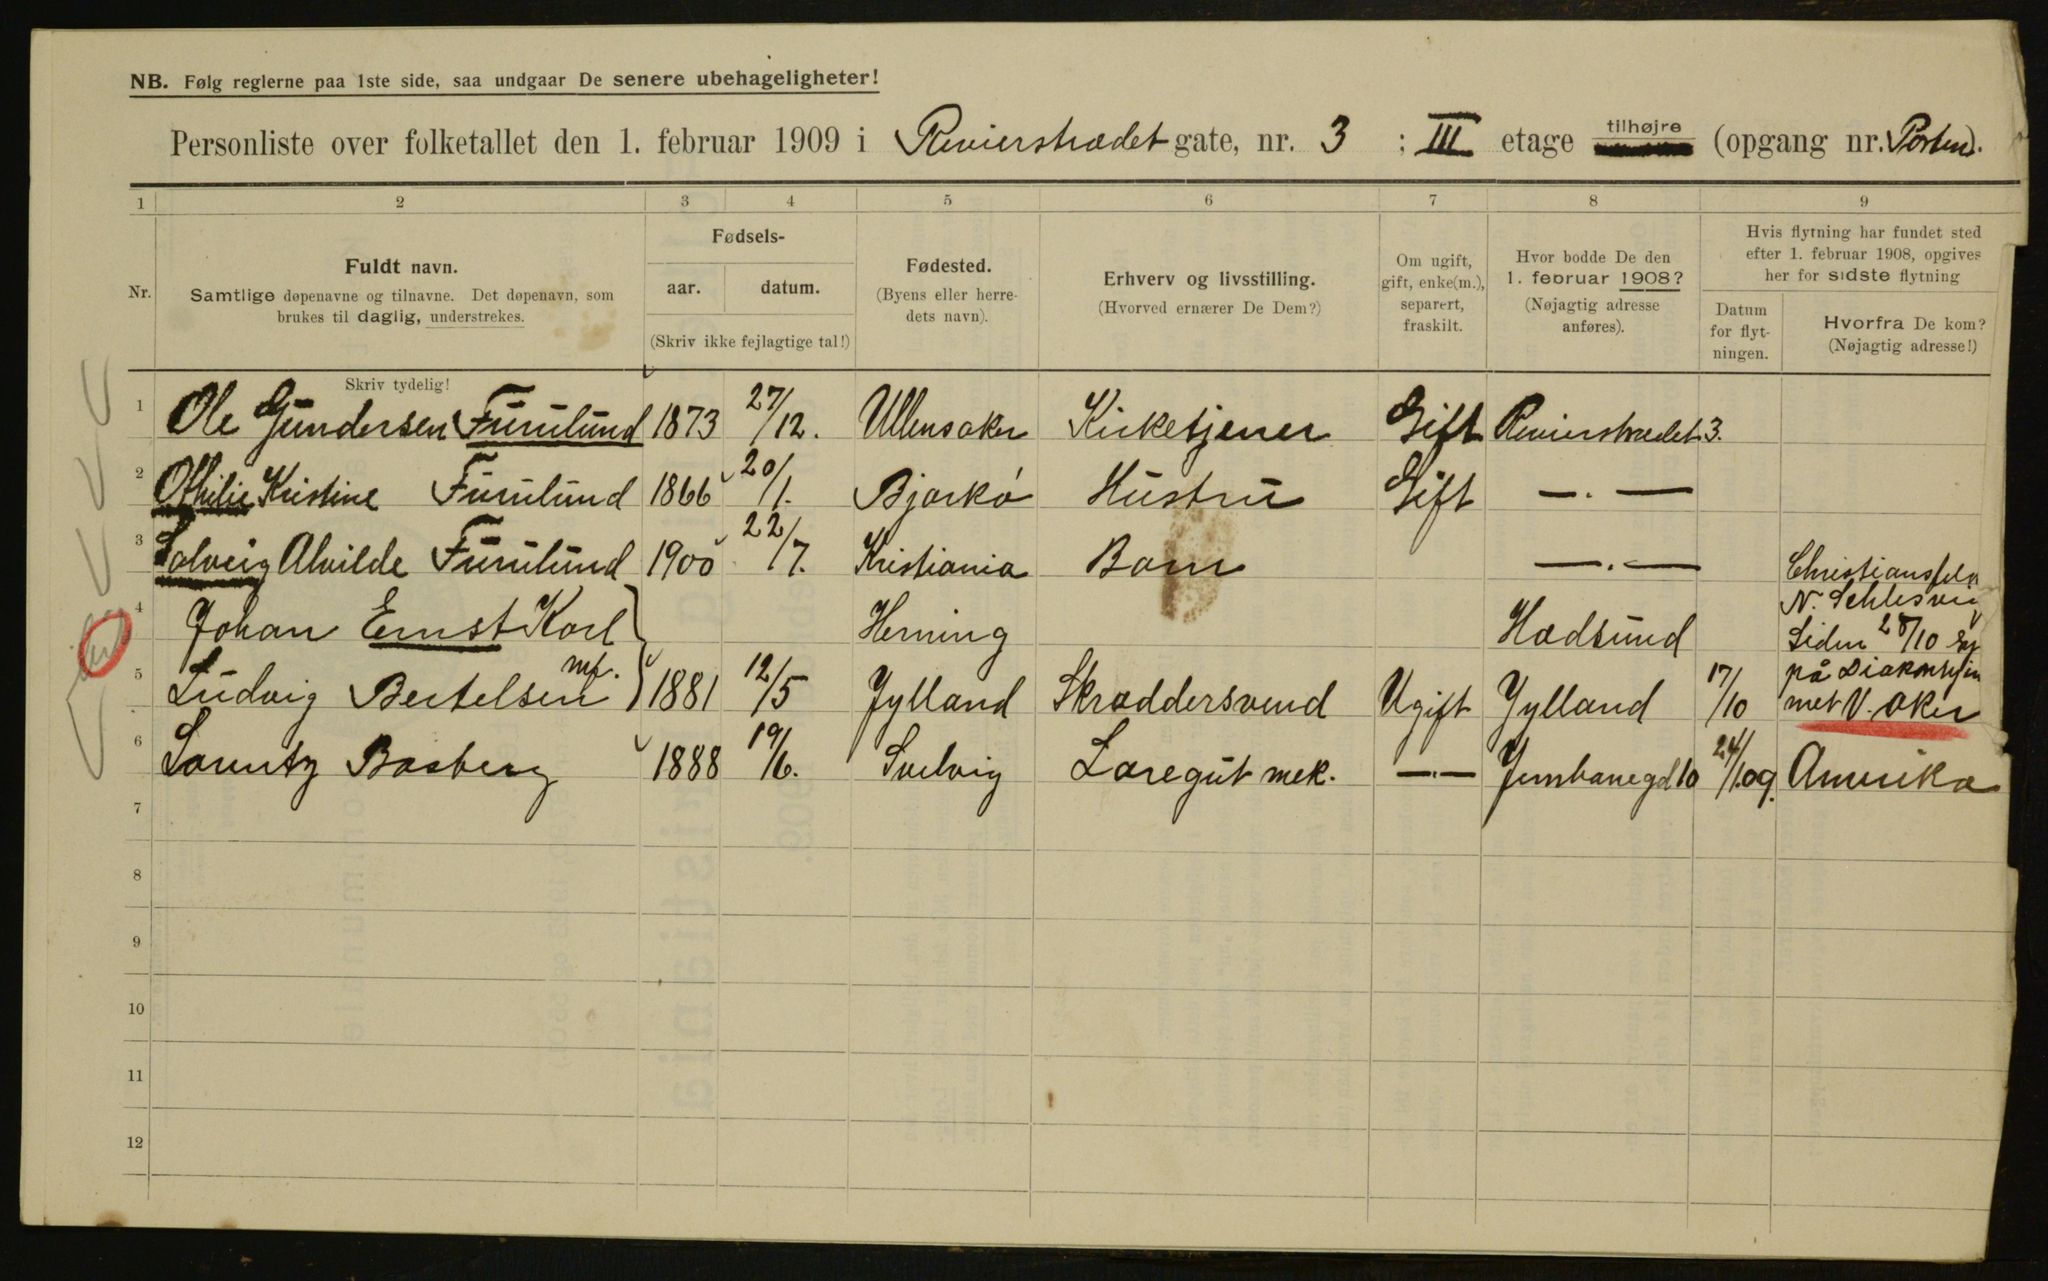 NB. Følg reglerne paa 1ste side, saa undgaar De senere ubehageligheter!
Personliste over folketallet den 1. februar 1909 i Revierstrædet gate, nr. 3 ; III etage tilhøjre (opgang nr. Porten).
1 2 3 4 5 6 7 8 9
Nr.
Fuldt navn.
Samtlige døpenavne og tilnavne. Det døpenavn, som
brukes til daglig, understrekes.
Skriv tydelig!
Fødsels-
aar. datum.
(Skriv ikke fejlagtige tal!)
Fødested.
(Byens eller herre-
dets navn).
Erhverv og livsstilling.
(Hvorved ernærer De Dem?)
Om ugift,
gift, enke(m.),
separert,
fraskilt.
Hvor bodde De den
1. februar 1908?
(Nøjagtig adresse
anføres).
Hvis flytning har fundet sted
efter 1. februar 1908, opgives
her for sidste flytning
Datum
for flyt-
ningen.
Hvorfra De kom?
(Nøjagtig adresse!)
1 Ole Gundersen Furulund 1873 27/12. Ullensaker Kirketjener Gift Revierstrædet 3.
2 Othilie Kristine Furulund 1866 20/1. Bjarkö Hustru Gift —.—
3 Solveig Alvilde Furulund 1900 22/7. Kristiania Barn —.—
Christiansfeld
N. Schlesvig
4 Johan Ernst Karl Herning Hadsund Siden 28/10
på
5 Ludvig Bertelsen mf. 1881 12/5 Jylland Skræddersvend Ugift Jylland 17/10 met V. Aker
6 Lauritz Basberg 1888 19/6. Svelvig Læregut mek. —.— Jernbanegd 10 24/1.09. Amerika
7
8
9
10
11
12